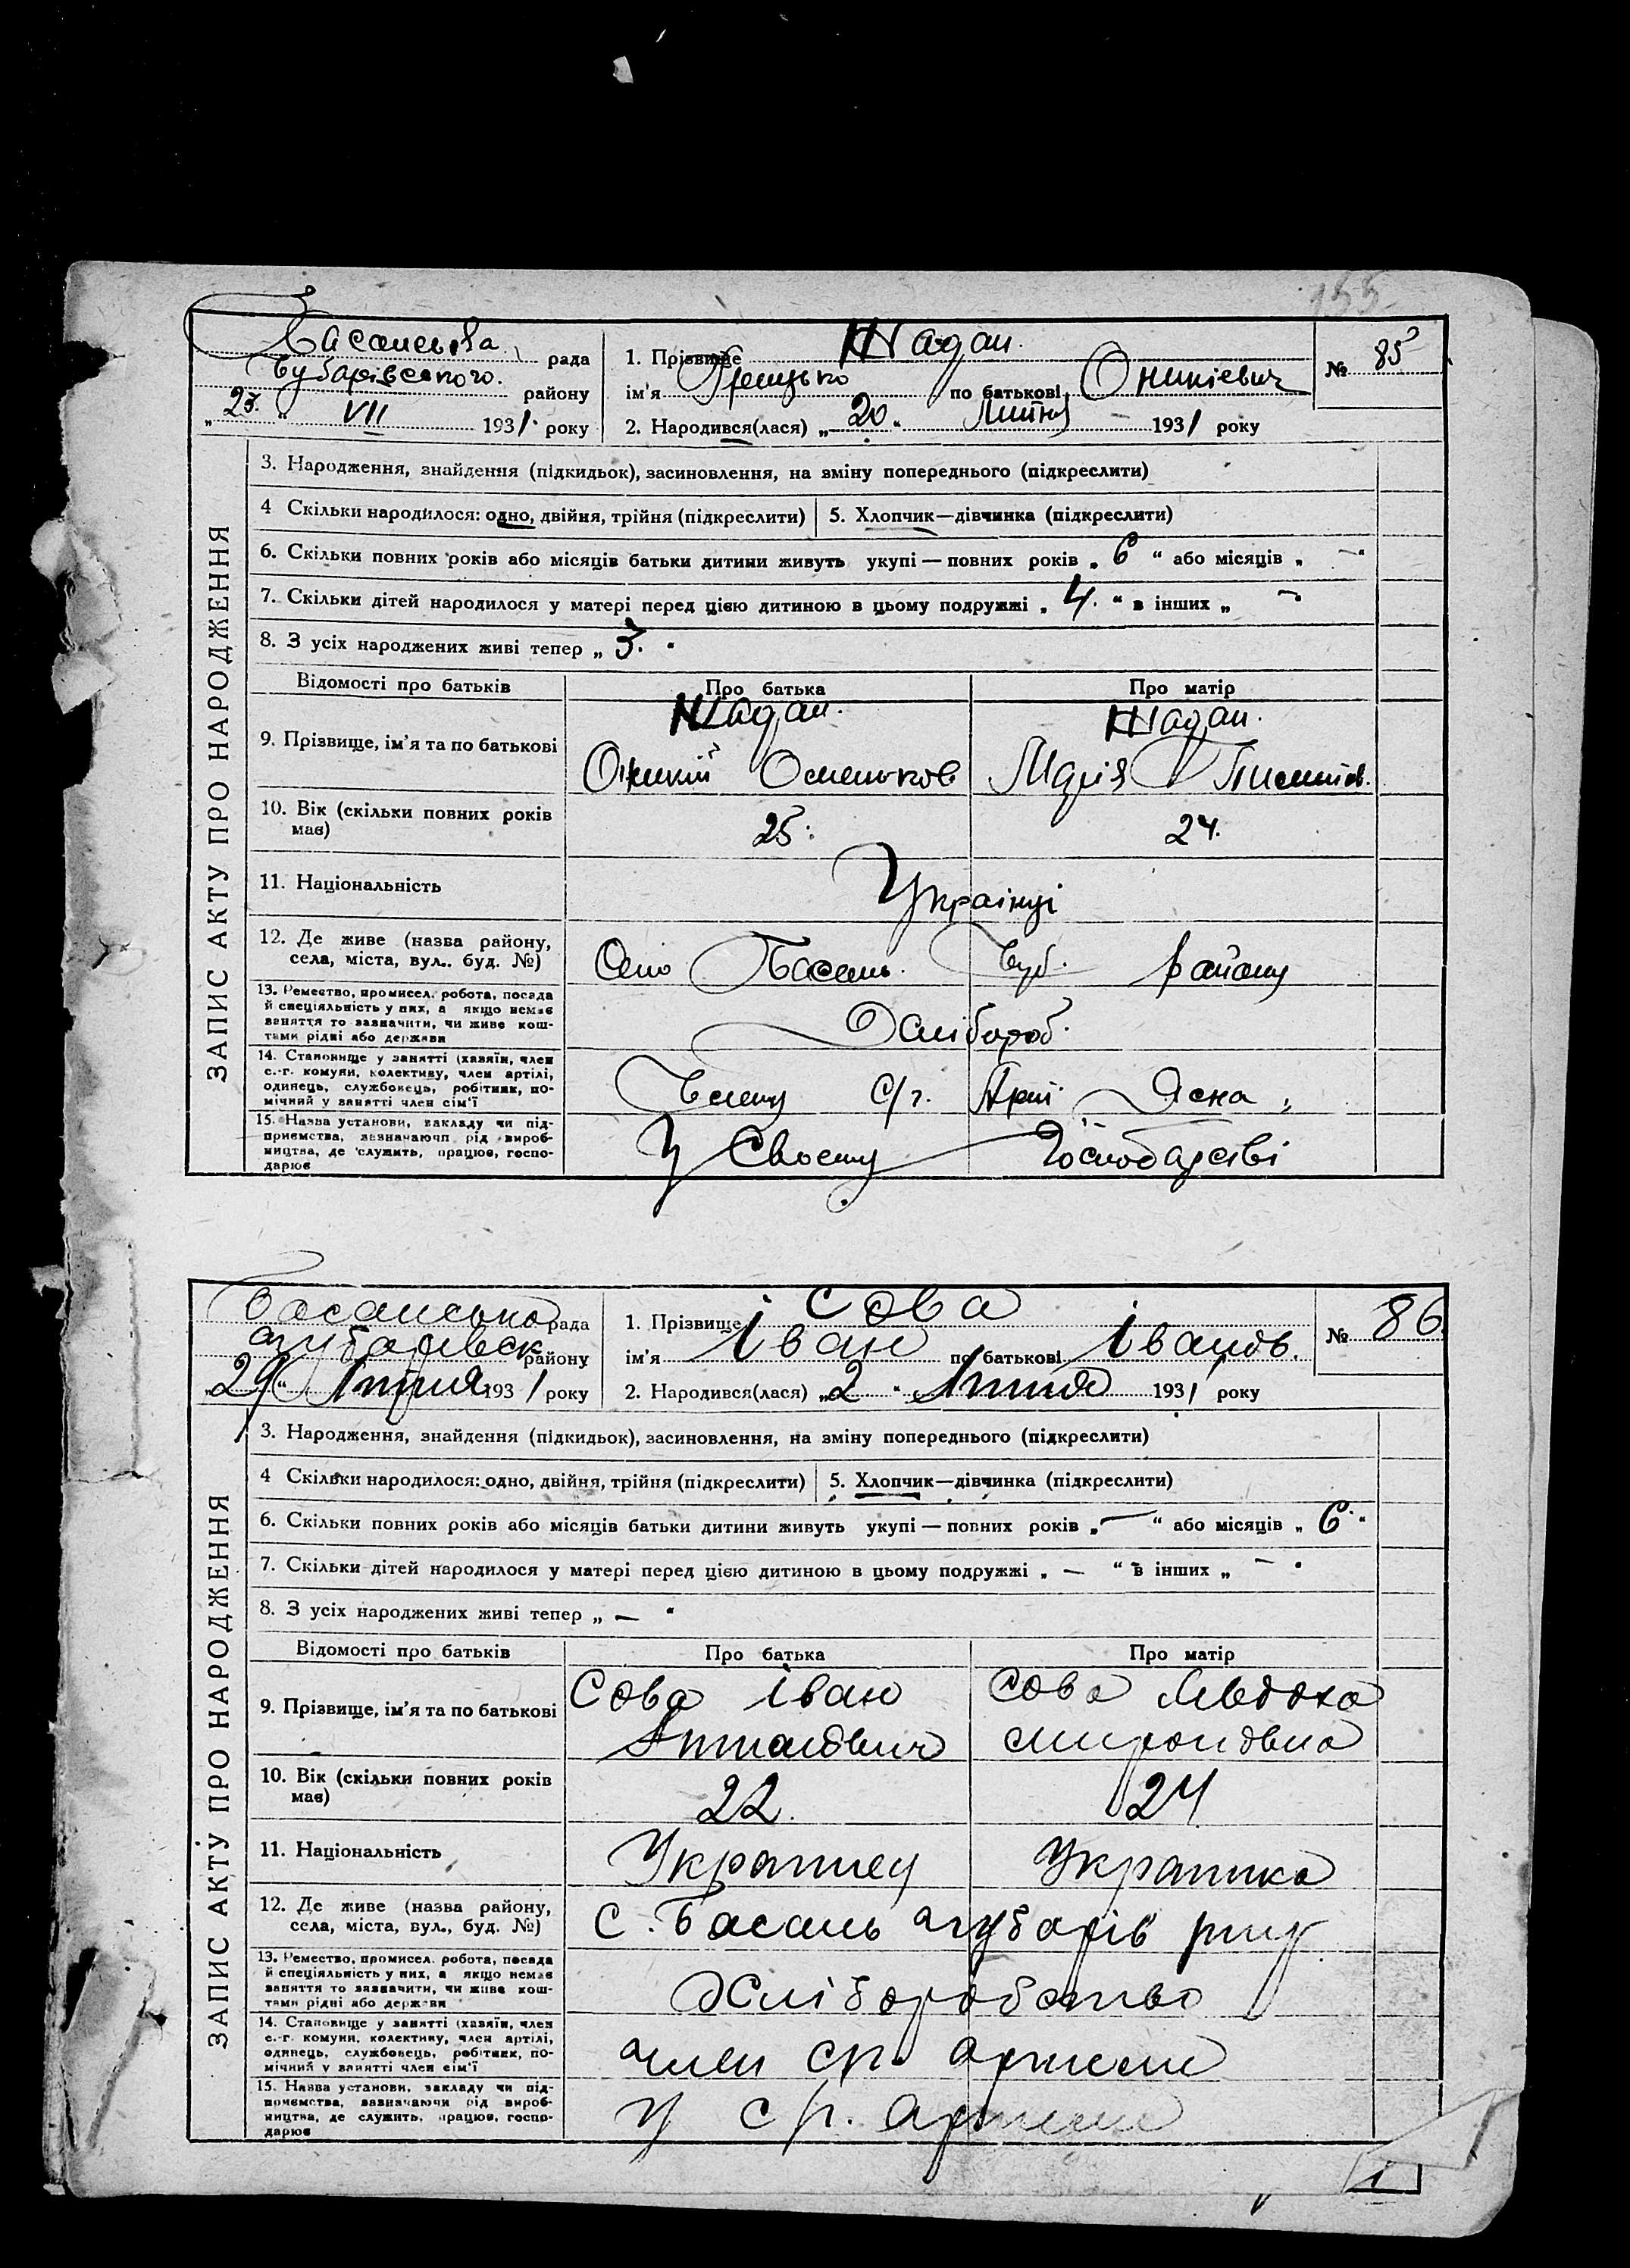 155
Басанська рада
Чубарівського району
„23“ VII 1931 року
1. Прізвище Жадан
ім'я Грицько по батькові Оникієвич
2. Народився(лася) „20“ Липня 1931 року
№ 85
ЗАПИС АКТУ ПРО НАРОДЖЕННЯ
3. Народження, знайдення (підкидьок), засиновлення, на зміну попереднього (підкреслити)
4 Скільки народилося: одно, двійня, трійня (підкреслити) 5. Хлопчик—дівчинка (підкреслити)
6. Скільки повних років або місяців батьки дитини живуть укупі — повних років „6“ або місяців „—“
7. Скільки дітей народилося у матері перед цією дитиною в цьому подружжі „4.“ в інших „—
8. З усіх народжених живі тепер „3.“
Відомості про батьків Про батька Про матір
9. Прізвище, ім'я та по батькові
Жадан. Жадан.
Оникій Марія
10. Вік (скільки повних років має) 25. 24.
11. Національність Українці
12. Де живе (назва району, села, міста, вул.. буд. №)
Село Басань. Чуб. району
13. Ремество, промисел. робота, посада й спеціяльність у них, а якщо немає заняття то зазначити, чи живе коштами рідні або держави
Хлібороб.
14. Становище у занятті (хазяїн, член с.-г. комуни, колективу, член артілі, одинець, службовець, робітник, помічний у занятті член сім'ї
Члени с/г. Арт Ясна
15. Назва установи, закладу чи підприємства, зазначаючи рід виробництва, де служить, працює, господарює
У Своєму Господарстві
Басанська рада
Чубарівськ району
„29“ Липня 1931 року
1. Прізвище Сова
ім'я Іван по батькові Іванов.
2. Народився(лася) „2“ Липня 1931 року
№ 86.
ЗАПИС АКТУ ПРО НАРОДЖЕННЯ
3. Народження, знайдення (підкидьок), засиновлення, на зміну попереднього (підкреслити)
4 Скільки народилося: одно, двійня, трійня (підкреслити) 5. Хлопчик—дівчинка (підкреслити)
6. Скільки повних років або місяців батьки дитини живуть укупі — повних років „—“ або місяців „6“
7. Скільки дітей народилося у матері перед цією дитиною в цьому подружжі „—“ в інших „—“
8. З усіх народжених живі тепер „—“
Відомості про батьків Про батька Про матір
9. Прізвище, ім'я та по батькові
Сова Іван Сова Явдоха
Антонович Мироновна
10. Вік (скільки повних років має) 22. 24
11. Національність Украинец Украинка
12. Де живе (назва району, села, міста, вул., буд. №)
с. Басань Чубарів р-ну
13. Ремество, промисел. робота, посада й спеціяльність у них, а якщо немає заняття то зазначити, чи живе коштами рідні або держави
Хліборобство
14. Становище у занятті (хазяїн, член с.-г. комуни, колективу, член артілі, одинець, службовець, робітник, помічний у занятті член сім'ї
член с/г. артели
15. Назва установи, закладу чи підприємства, зазначаючи рід виробництва, де служить, працює, господарює
у с/г. артели
1